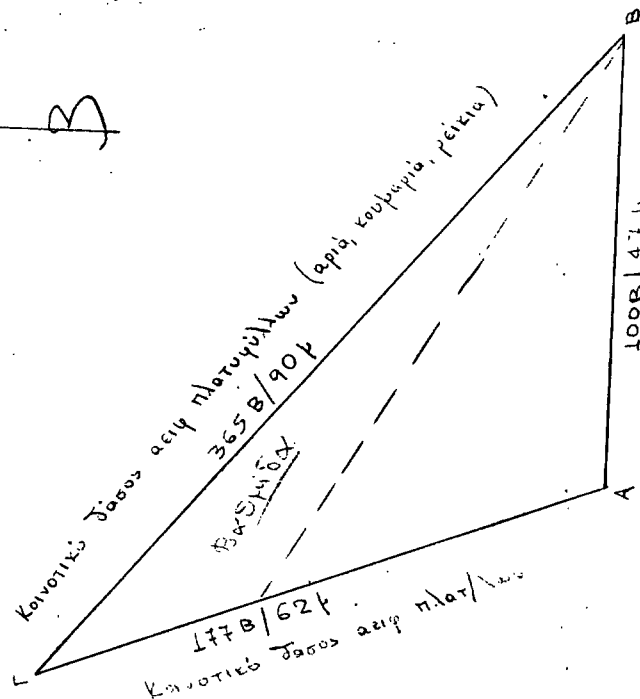 B
Κοινοτικό δάσος αειφ πλατυφύλλων (αριά, κουμαριά, ρείκια)
365 Β/90 μ
Βαθμίδα
100Β/47μ
A
177 Β/62μ
Κοινοτικό δάσος αειφ πλατ/λων
Γ